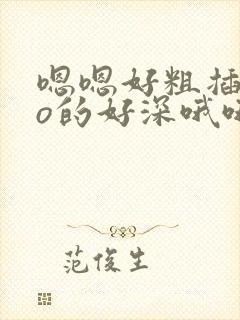 嗯嗯好粗插
o的好深哦
范俊生